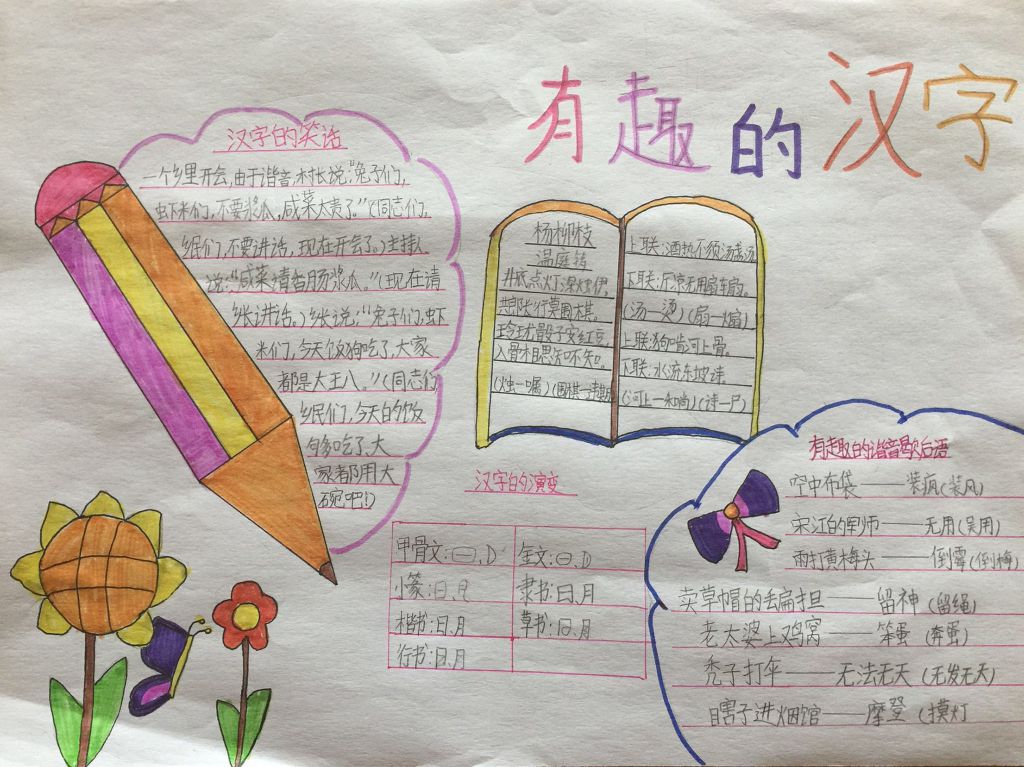 有趣的汉字
汉字的笑话
一个乡里开会,由于谐音,村长说:“兔子们,
虾米们,不要浆瓜,咸菜太贵了。”(同志们,
乡民们,不要讲话,现在开会了。)主持人
说:“咸菜请香肠浆瓜。”(现在请
乡长讲话。)乡长说:“兔子们,虾
米们,今天饭狗吃了,大家
都是大王八。”(同志们,
乡民们,今天的饭
够吃了、大
家都用大
碗吧!)
杨柳枝
温庭筠
井底点灯深烛伊,
共郎长行莫围棋。
玲珑骰子安红豆,
入骨相思知不知。
(烛—嘱)(围棋—违期)
上联:酒热不须汤汤汤
下联:厅凉无用扇车扇。
(汤—烫)(扇—煽)
上联:狗啃河上骨。
下联:水流东坡诗
(河上—和尚)(诗—尸)
汉字的演变
甲骨文: 金文:
小篆:日、月 隶书:日、月
楷书:日、月 草书:日、月
行书:日、月
有趣的谐音歇后语
空中布袋——装疯(装风)
宋江的军师——无用(吴用)
雨打黄梅头——倒霉(倒梅)
卖草帽的丢扁担——留神(留绳)
老太婆上鸡窝——笨蛋(奔蛋)
秃子打伞——无法无天(无发无天)
瞎子进烟馆——摩登(摸灯